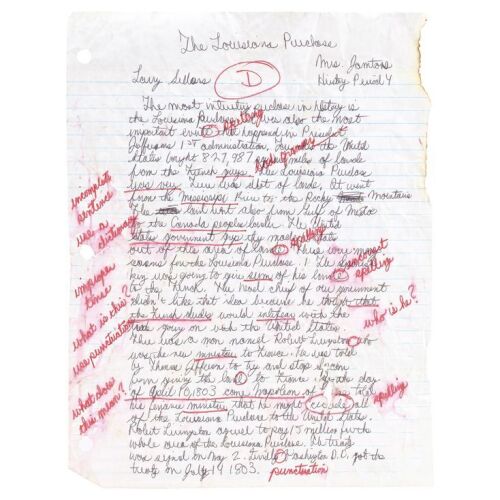 The Louisiana Purchase
Mrs. Jamtons
Larry Sellers
D
History Period 4
The most intresting puclase in history is
the Louisiana Purchase. It was also the most
important event that happend in President
spelling
Jeffersons 1st administration. the United
States bought 827,987 miles of lande
bad grammar
from the French guys. The Louisiana Purchase
was very. There was alot of lande. It went
incomplete sentence
from the Mississippi River to the Rocky Mountains
use a dictionary
The land went also from Gulf of Mexico
to the Canada peoples border. The United
States government gets thy most of States
spelling
out of the area of land. There were
reasons for the Louisiana Purchase. ! The Spanish
incorrect spelling
king was going to give some of his land
improper tense
to the French. The head cheif of our government
didn't like that idea because he that
what is this?
the French dudes would intefear with the
who is he?
use punctuation
going on with the United States.
There was a man named Robert Livingston who
was the new ministeu to France. He was told
by Thomas Jefferson to try and stop Spain
from giving the land to France. the day
what does this mean?
of April 10, 1803 came napoleon told
spelling
his finance ministeu that he might all
of the Louisiana Purchase to the United States.
Robert Livingston agreed to pay 15 million for the
whole area of the Louisiana Purchase. The treaty
was signed on May 2. Washington D.C. got the
treaty on July 14 1803.
punctuation